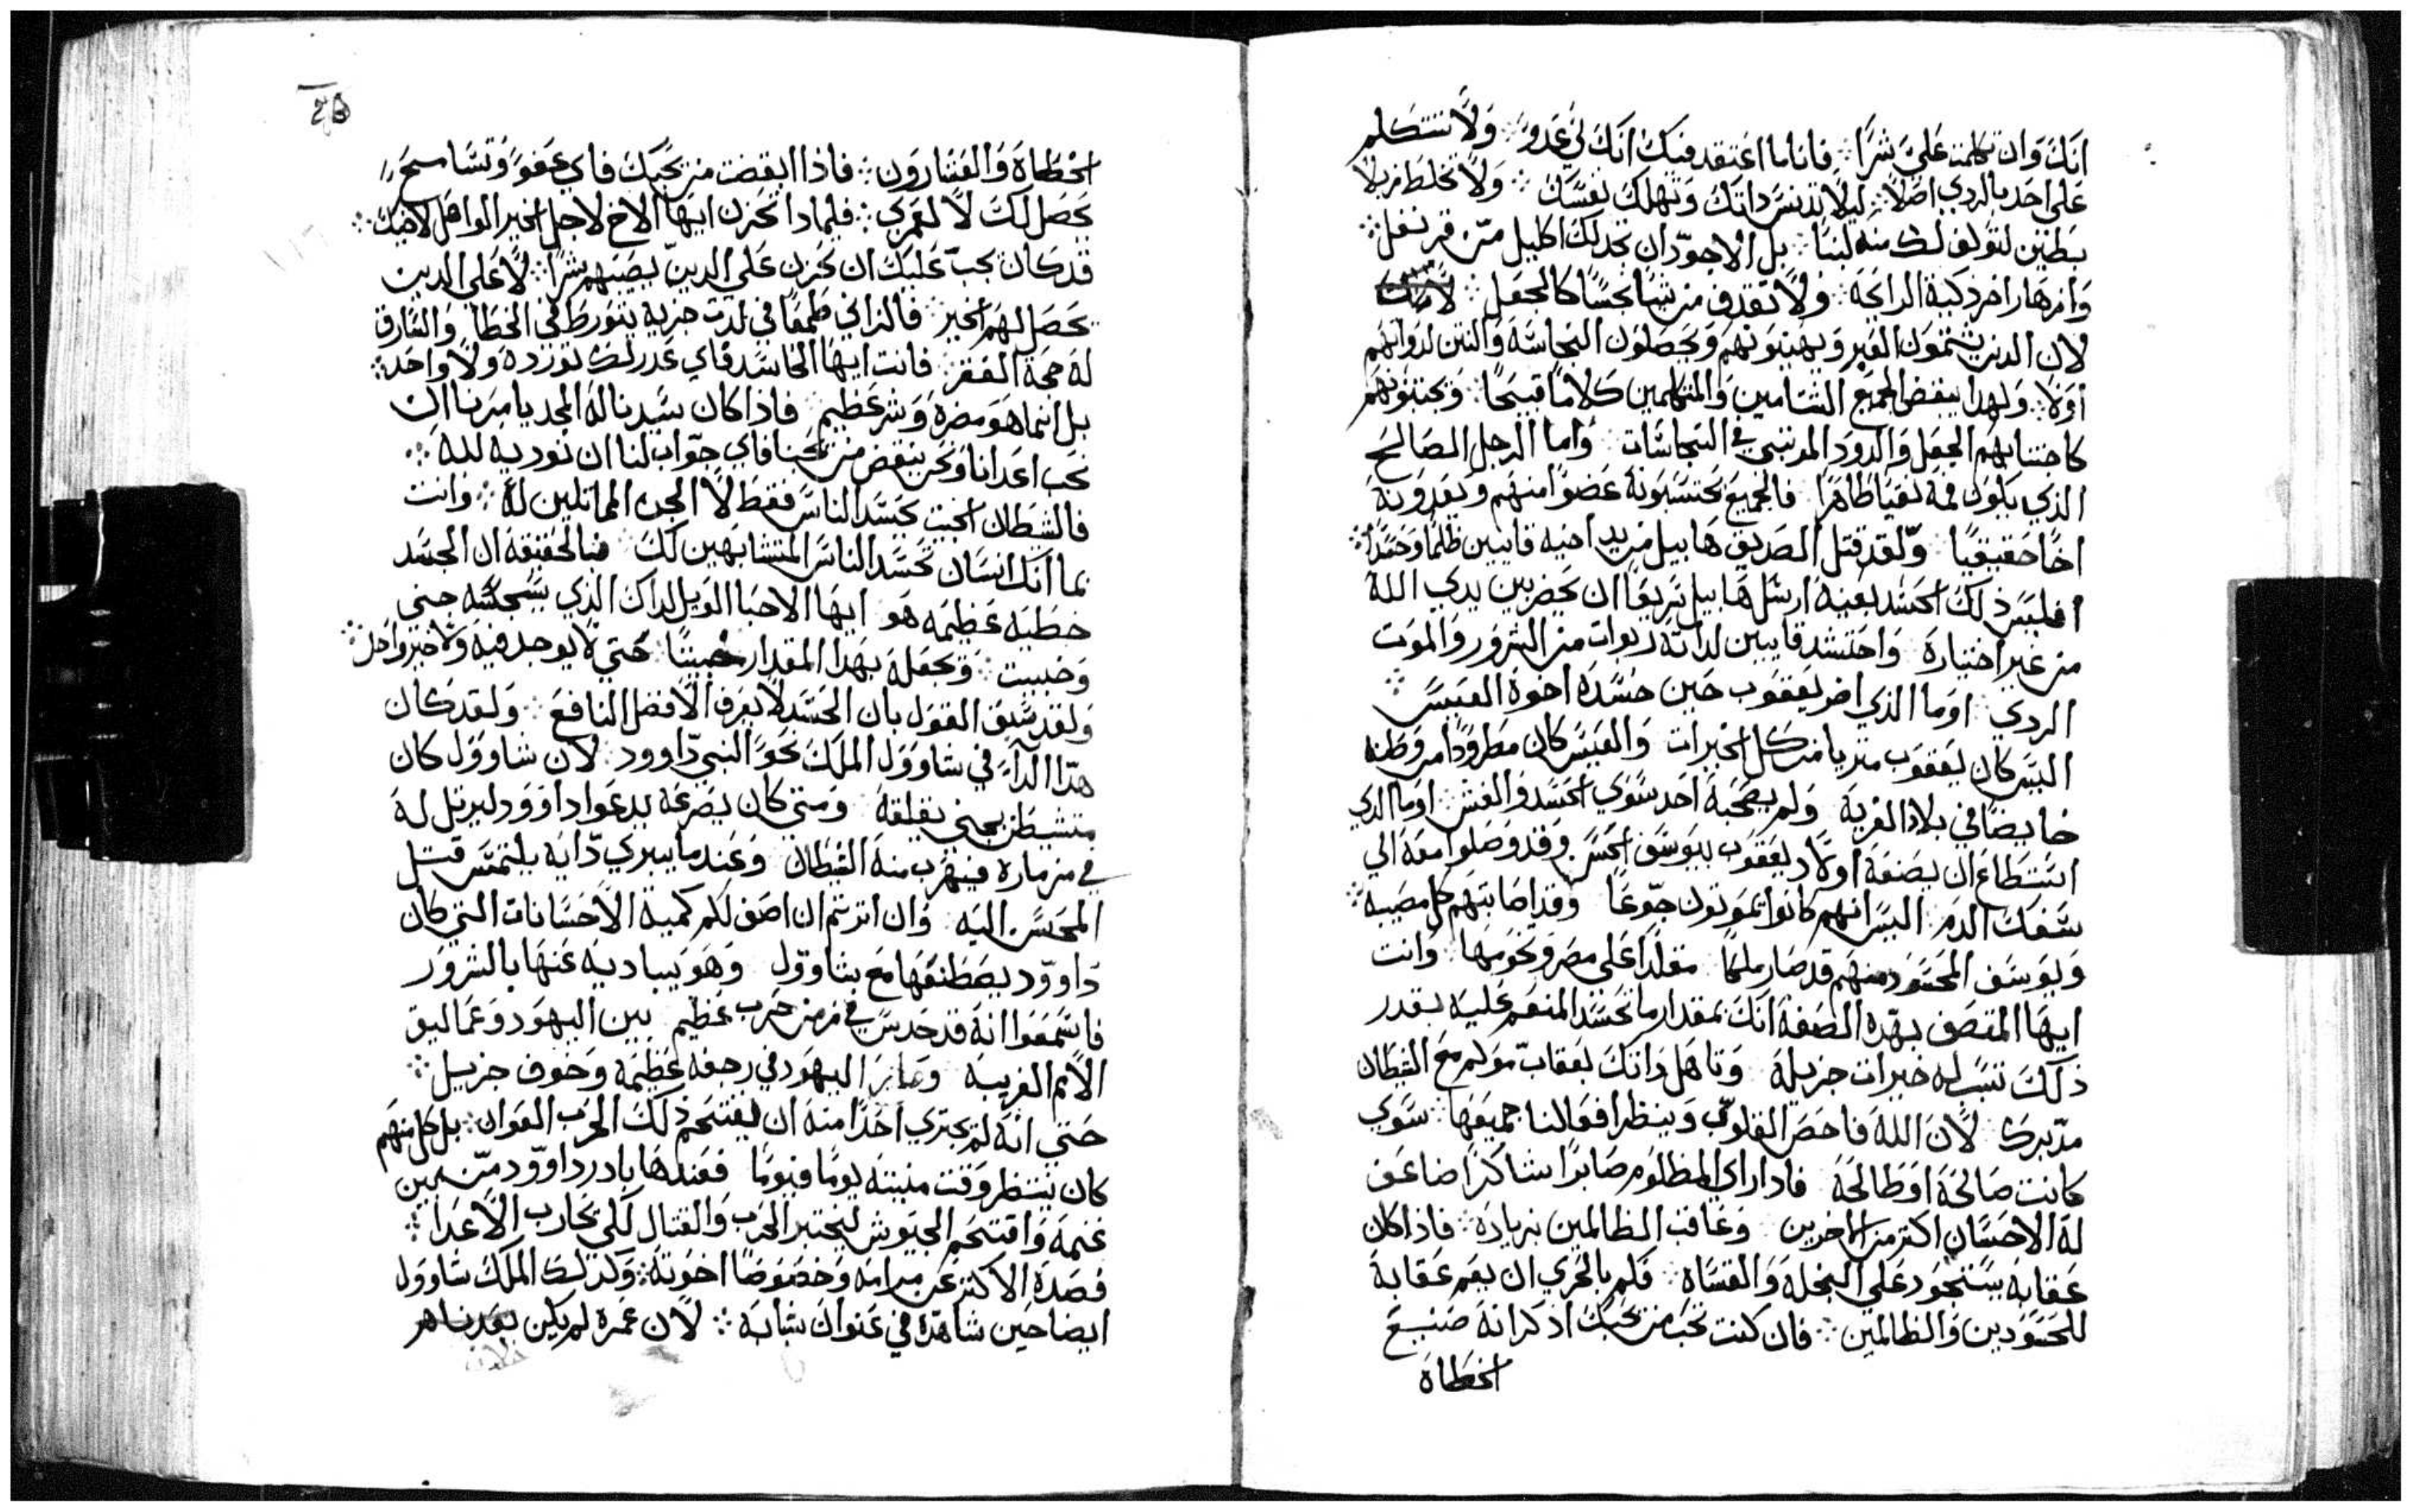 انك وان تكلمت علي شرًا ∴ فانا ما اعتقد فيك انك لي عدو ∴ ولا تتكلم
علي احد بالردي اصلًا ∴ ليلا تدنس داتك وتهلك نفسك ∴ ولا تخلط زبلا
بطين لتولف لك منه لبنًا ∴ بل الاجود ان تجدلك اكليل من قرنفل ∴
وازهار اخر دكية الرايحة ∴ ولا تقدف من تشا نجسًا كالجعل ∴
لان الدين يشتمون الغير ويهينونهم ويحصلون النجاسة والنتن لدواتهم
اولًا ∴ ولهدا يبغض الجميع الشتامين والمتكلمين كلامًا قبيحًا ∴ ويجتنبونهم
كاجتنابهم الجعل والدود المرتبي في النجاسات ∴ واما الرجل الصالح
الذي يكون فمه نقيا طاهرًا فالجميع يحتسبونه عضوًا منهم ويعدونه
اخًا حقيقيًا ولقد قتل الصديق هابيل من يد اخيه قايين ظلمًا وحسدًا ∴
افليس ذلك الحسد بعينه ارسل هابيل سريعًا ان يحضر بين يدي الله
من غير اختياره واحتشد قايين لداته ربوات من الشرور والموت
الردي ∴ اوما الذي اضر يعقوب حين حسده اخوه العيس ∴
اليس كان يعقوب متريا من كل الخيرات والعيس كان مطرودًا من وطنه
خايضًا في بلاد الغربة ولم يصحبه احد سوي الحسد والغش ∴ اوما الدي
استطاع ان يصنعه اولاد يعقوب بيوسف الحسن وقد وصلوا معه الي
سفك الدم ∴ اليس انهم كانوا يموتون جوعًا وقد اصابتهم كل مصيبة ∴
ويوسف المحسود منهم قد صار ملكًا متقلدًا علي مصر وتخومها ∴ وانت
ايها المتصف بهده الصفة انك بمقدار ما تحسد المنعم عليه بقدر
ذلك تسبب له خيرات جزيلة وتاهل داتك بعقاب مولم مع الشيطان
مدبرك لان الله فاحص القلوب وينظر افعالنا جميعها ∴ سوي
كانت صالحة او طالحة فادا راي المظلوم صابرًا شاكرًا ضاعف
له الاحسان اكتر من الاخرين وعاقب الظالمين بزيادة ∴ فاذا كان
عقابه يستحود علي البخلة والقساة ∴ فكم بالحري ان يعم عقابه
للحسودين والظالمين ∴ فان كنت تحب من يحبك اذكر انه صنيع
الخطاة
الخطاة والعشارون ∴ فاذا ابغضت من يحبك فاي عفو وتسامح
يحصل لك لا لعمري ∴ فلمادا تحزن ايها الاخ لاجل الخير الواصل لاخيك ∴
قد كان يجب عليك ان تحزن علي الدين يصيبهم شرًا ∴ لا علي الدين
يحصل لهم الخير ∴ فالزاني طمعًا في لدت حزبه يتورط في الخطا ∴ والسارق
له حجة الفقر ∴ فانت ايها الحاسد فاي عدر لك تورده ولا واحد ∴
بل انما هو مضره وشر عظيم ∴ فاذا كان سيدنا له المجد يامرنا ان
نحب اعدانا ونحن نبغض من يحبنا فاي جواب لنا ان نوديه لله ∴
فالشطان الخبيت يحسد الناس فقط لا الجن المماتلين له ∴ وانت
بما انك انسان تحسد الناس المتشابهين لك ∴ فبالحقيقة ان الحسد
خطية عظيمه هو ايها الاحبا الويل لداك الذي يستحكمه جني
وخبيت ∴ ويجعله بهدا المقدار خبيتًا حتي لا يوجد فيه ولا خير واحد ∴
ولقد سبق القول بان الحسد لا يعرف الافضل النافع ∴ ولقد كان
هدا الداء في شاوول الملك نحو النبي داوود ∴ لان شاوول كان
متشيطن بجني يقلقه ومتي كان يصرعه يدعوا داوود ليرتل له
في مزماره فيهرب منه الشيطان وعندما يبري دايه يلتمس قتل
المحسن اليه ∴ وان اترتم ان اصف لكم كمية الاحسانات التي كان
داوود يصطنعها مع شاوول وهو يباديه عنها بالشرور
فاسمعوا انه قد حدس في زمن حرب عظيم بين اليهود وعماليق
الامم الغريبة وصار اليهود في رجفه عظيمة وخوف جزيل ∴
حتي انه لم يجتري احدًا منه ان يقتحم ذلك الحرب العوان ∴ بل كل منهم
كان ينتظر وقت منيته يومًا فيومًا فعندها بادر داوود من بين
غنمه واقتحم الجيوش ليختبر الحرب والقتال لكي يحارب الاعدا ∴
فصده الاكتر عن مرامه وخصوصًا اخوته ∴ وكدلك الملك شاوول
ايضا حين شاهده في عنوان شبابه ∴ لان عمره لم يكن